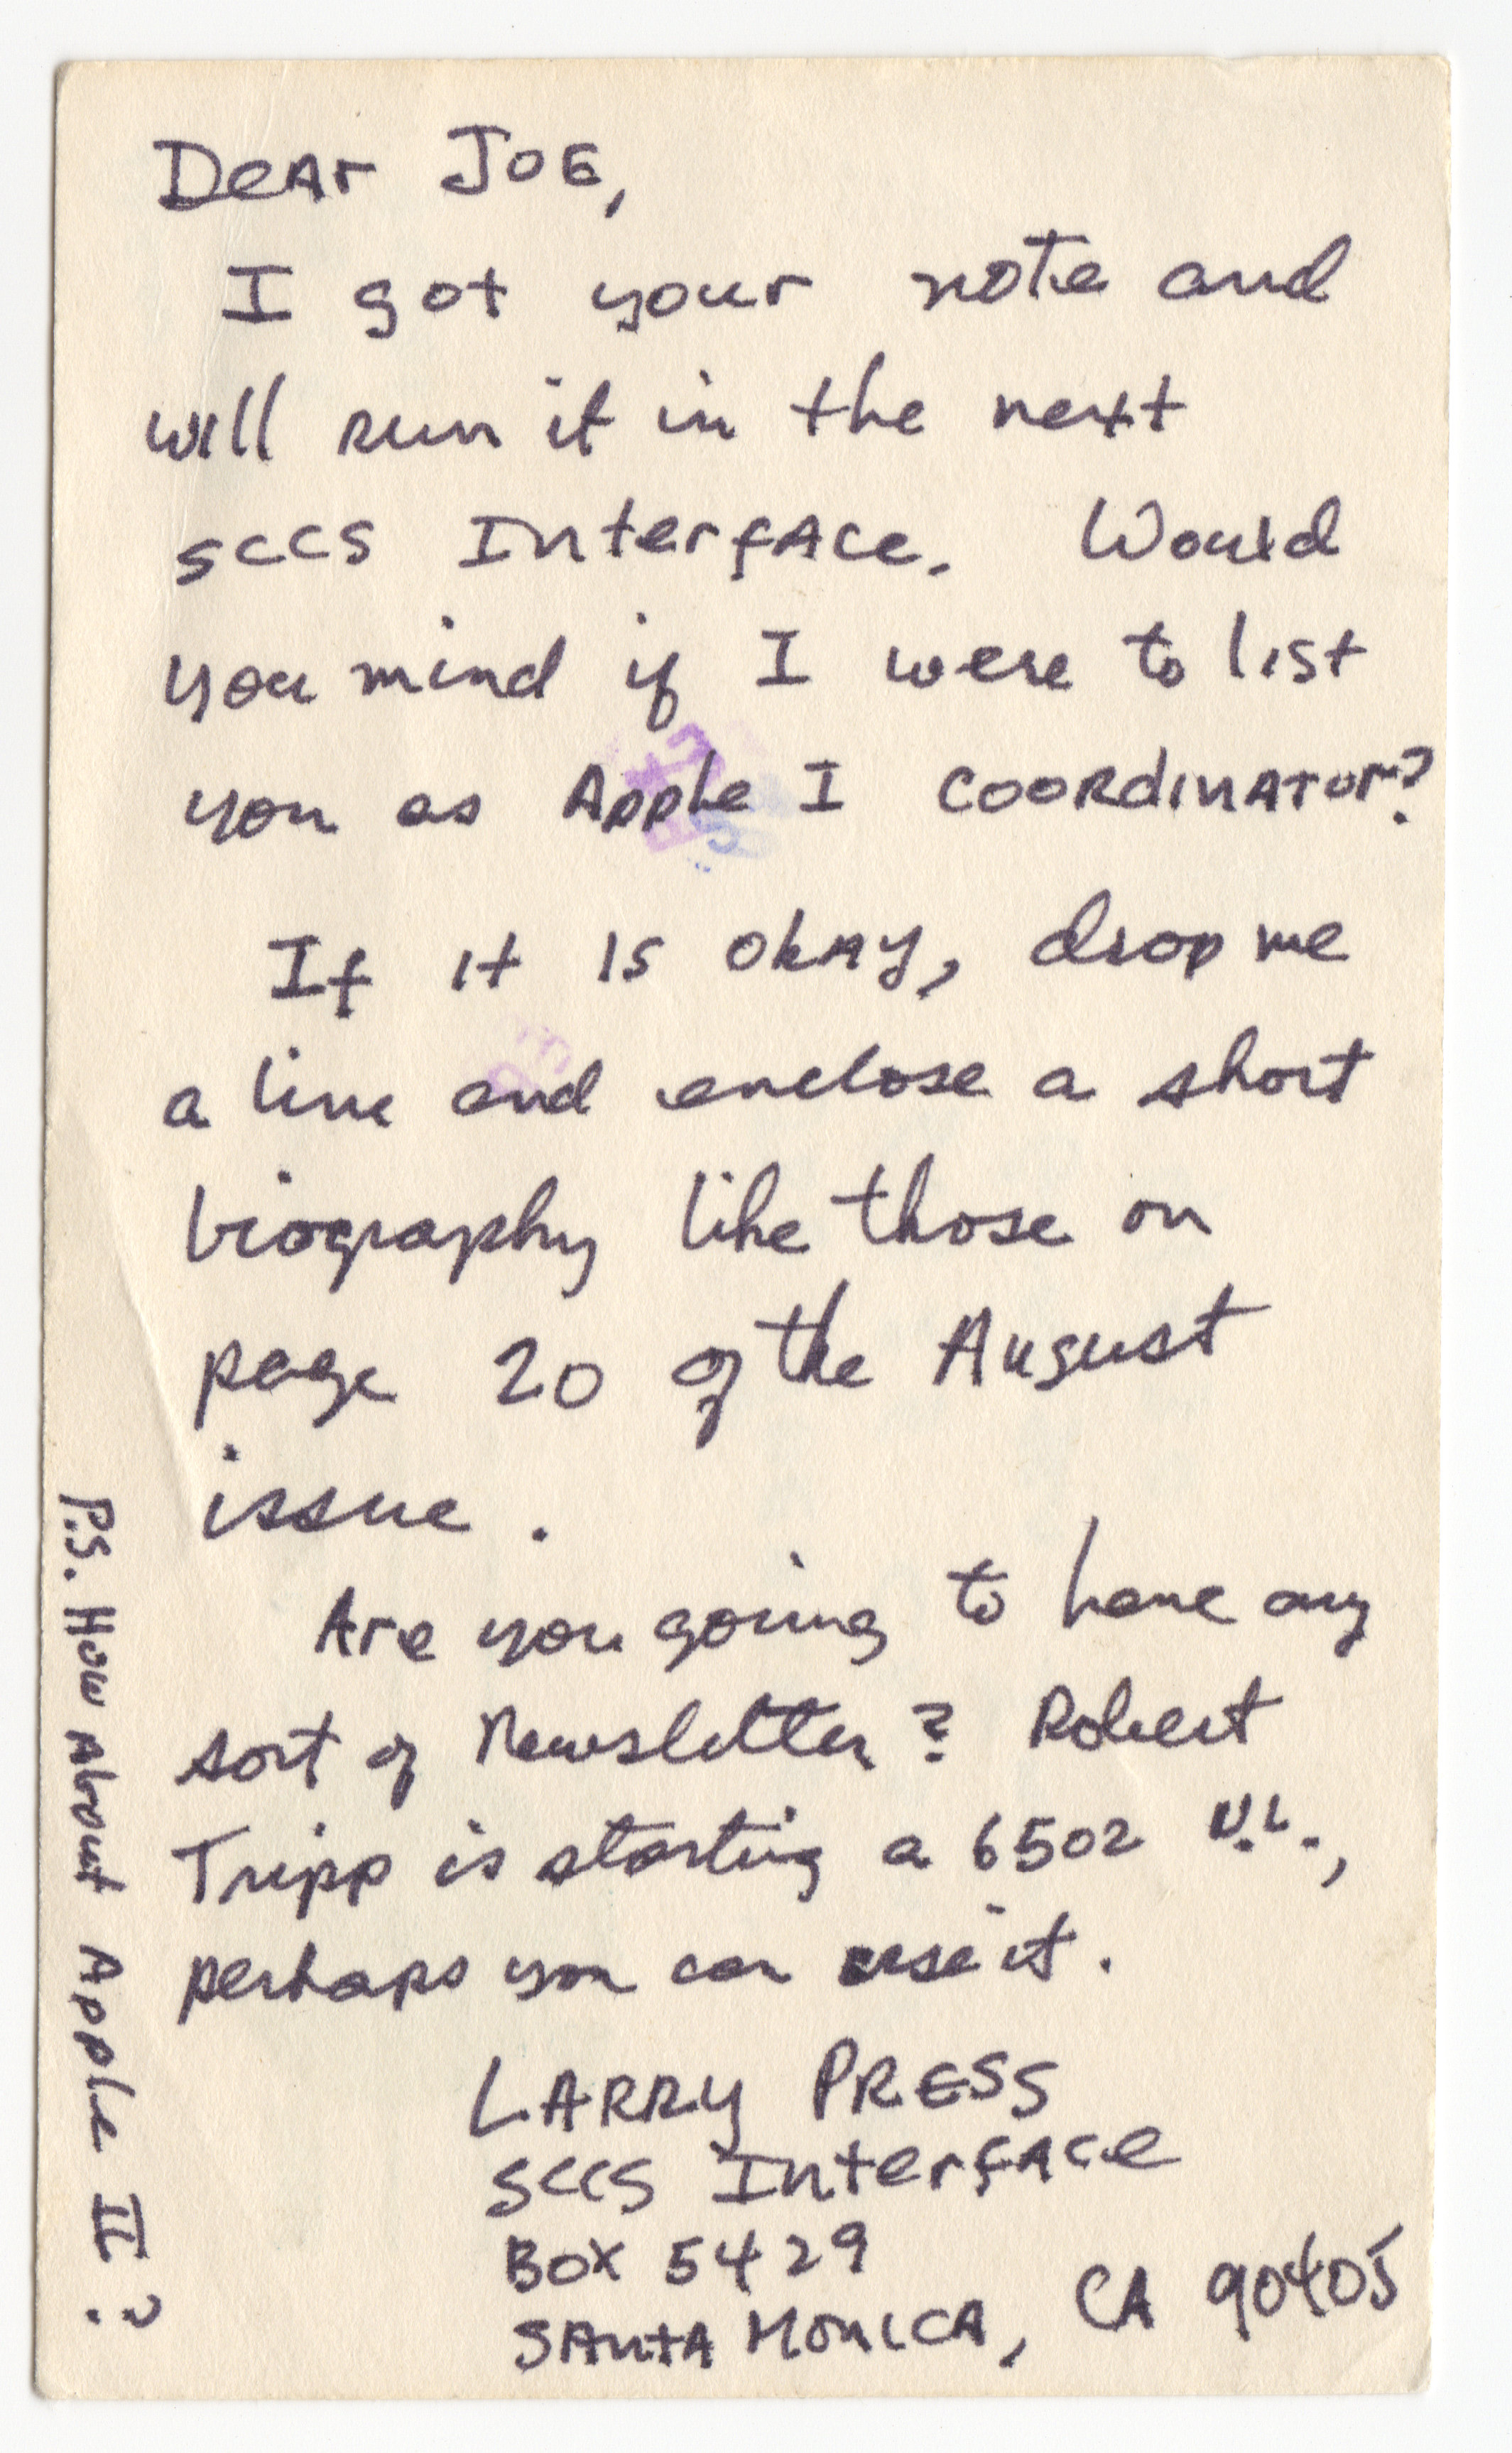 Dear Joe,
I got your note and
will run it in the next
SCCS Interface. Would
you mind if I were to list
you as Apple I coordinator?
If it is okay, drop me
a line and enclose a short
biography like those on
page 20 of the August
issue.
Are you going to have any
sort of Newsletter? Robert
Tripp is starting a 6502 N.L.,
perhaps you can use it.
LARRY PRESS
SCCS Interface
BOX 5429
SANTA MONICA, CA 90405
P.S. How About Apple II?